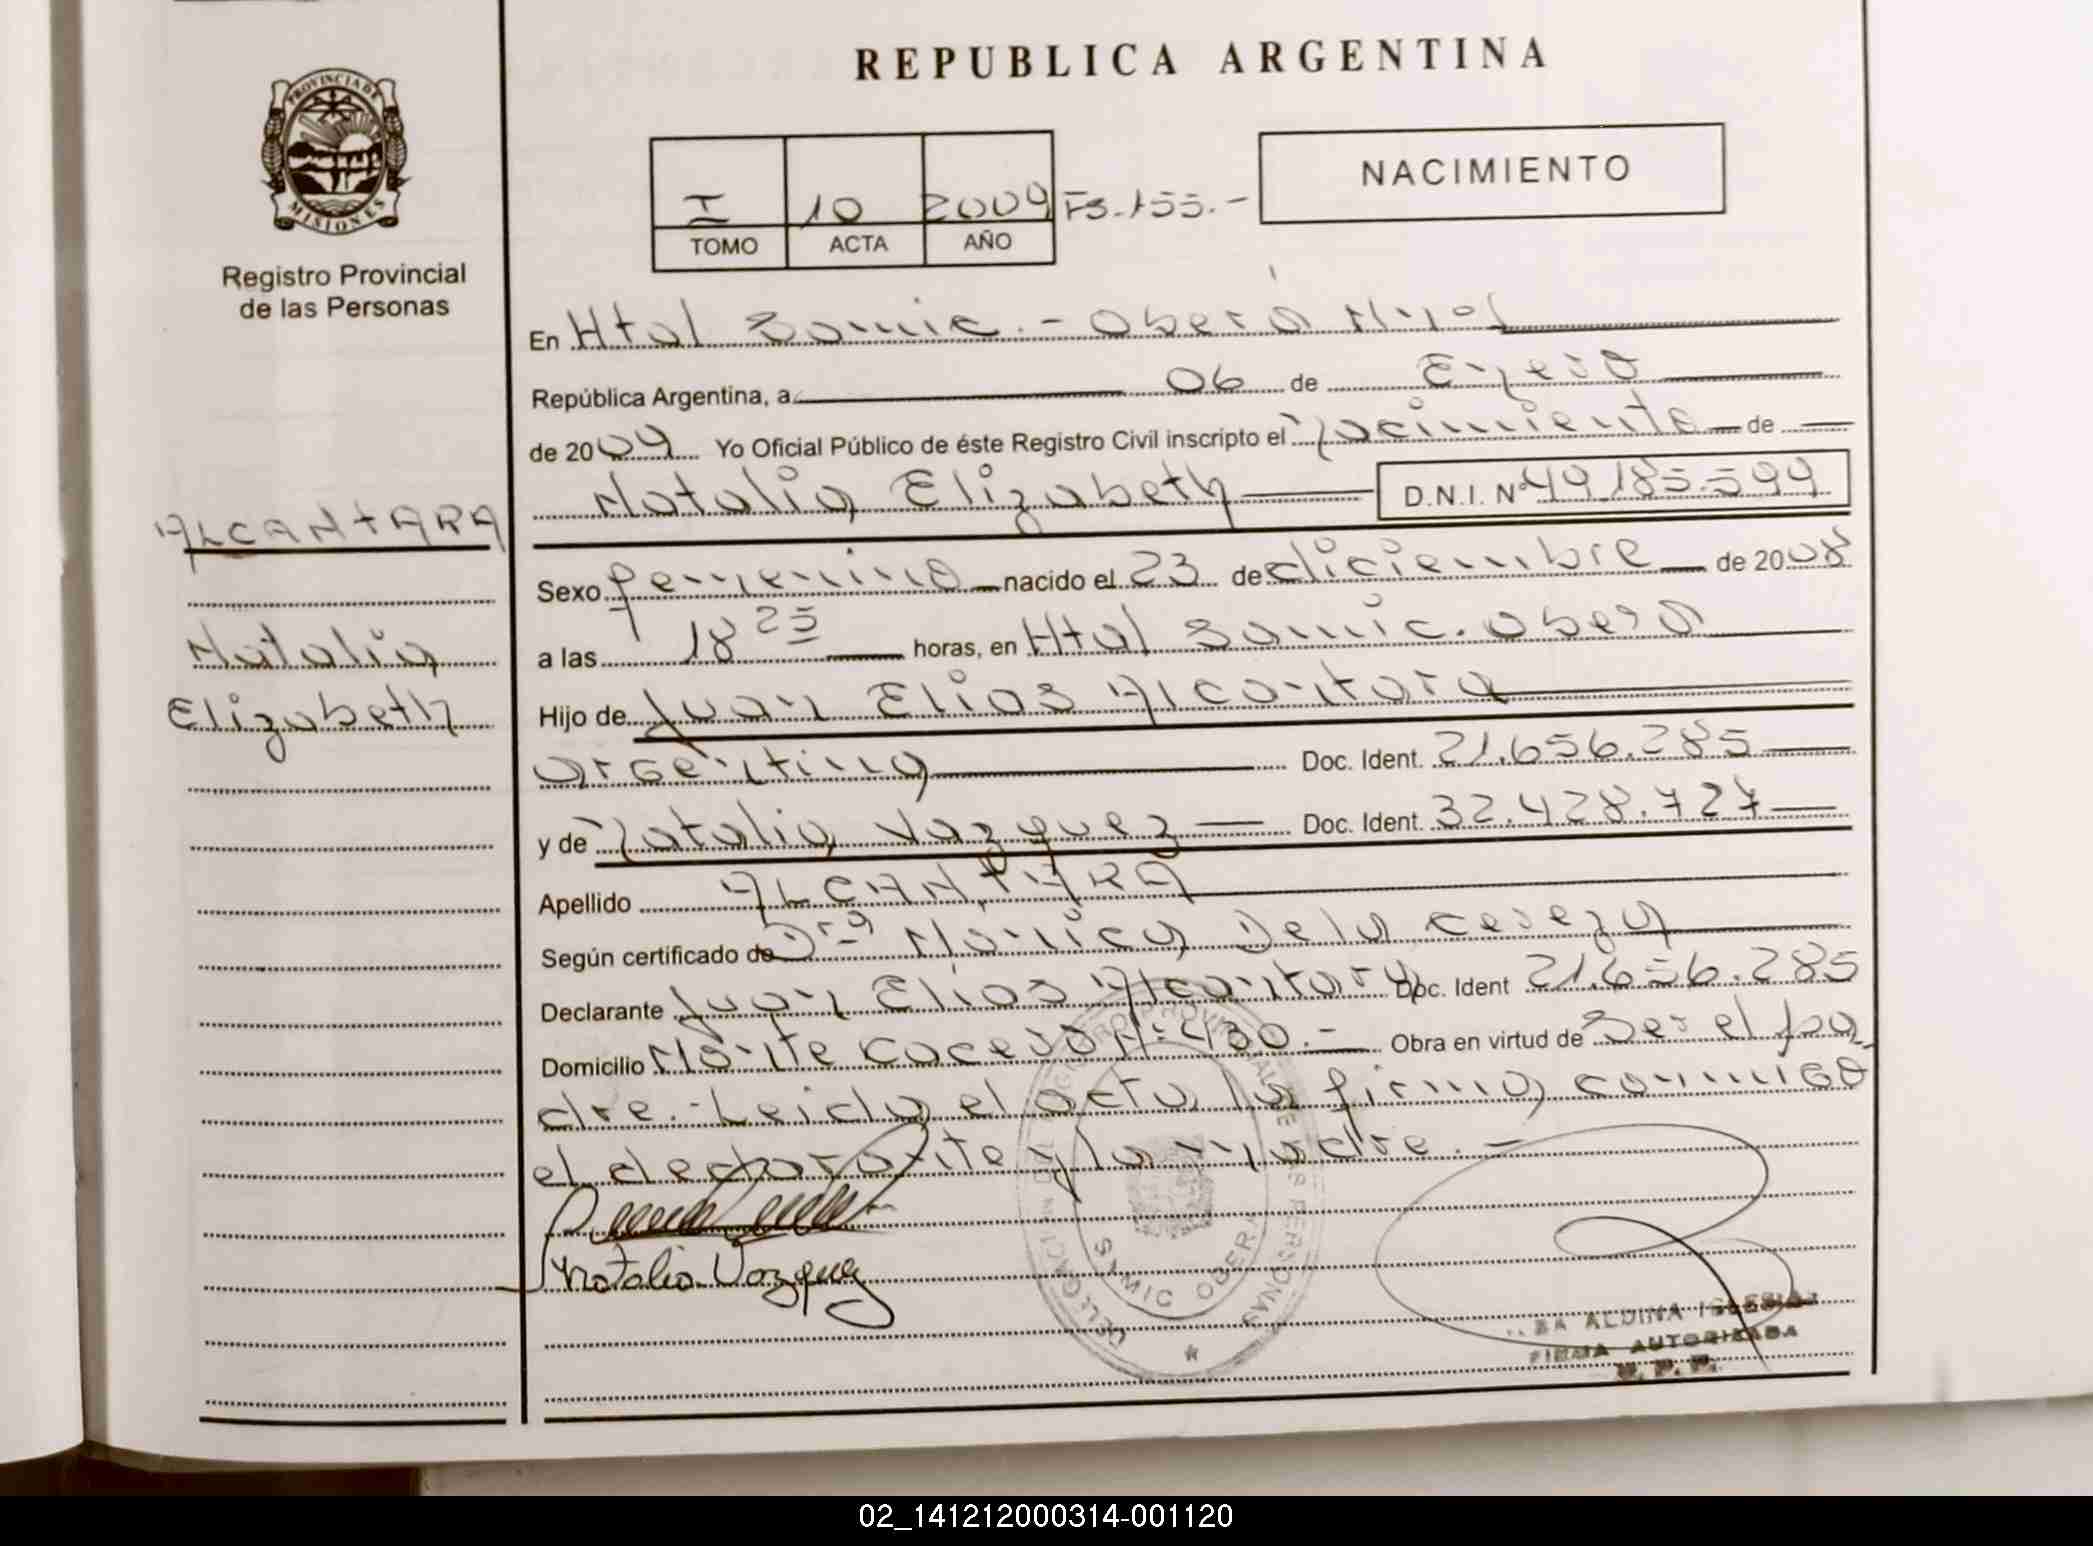 REPUBLICA ARGENTINA
PROVINCIA DE MISIONES
Registro Provincial
de las Personas
I 10 2009 Fs. 155.-
TOMO ACTA AÑO
NACIMIENTO
En Htal Samic.- Oberá Mnes
República Argentina, a 06 de Enero
de 2009 Yo Oficial Público de éste Registro Civil inscripto el Nacimiento de
Natalia Elizabeth D.N.I. Nº 49.185.599
ALCANTARA
Natalia
Elizabeth
Sexo femenino nacido el 23 de diciembre de 2008
a las 18 25 horas, en Htal Samic. Oberá
Hijo de Juan Elias Alcantara
argentina Doc. Ident. 21.656.285
y de Natalia Vazquez Doc. Ident. 32.428.727
Apellido ALCANTARA
Según certificado de Dra Monica De la
Declarante Juan Elias Alcantara Doc. Ident 21.656.285
Domicilio Monte Caceros Nº 430.- Obra en virtud de Ser el pa-
dre.- Leida el acta, la firma conmigo
el declarante y la madre.-
Natalia Vazquez
DELEGACION DEL REGISTRO PROVINCIAL DE LAS PERSONAS
SAMIC OBERA
ALDINA IGLESIAS
FIRMA AUTORIZADA
R. P. P.
02_141212000314-001120